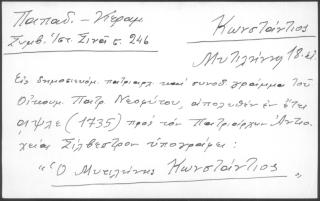 Παπαδ. – Κεραμ.
Κωνστάντιος
Συμβ. Ἱστ. Σινᾶ σ. 246
Μυτιλήνης 18.
Εἰς δημοσιευόμ. πατριαρχ. καὶ συνοδ. γράμμα τοῦ
Οἰκουμ. Πατρ. Νεοφύτου, ἀπολυθὲν ἐν ἔτει
αψλε (1735) πρὸς τὸν Πατριάρχην Ἀντιο-
χείας Σίλβεστρον ὑπογράφει:
"Ὁ Μυτιλήνης Κωνστάντιος"